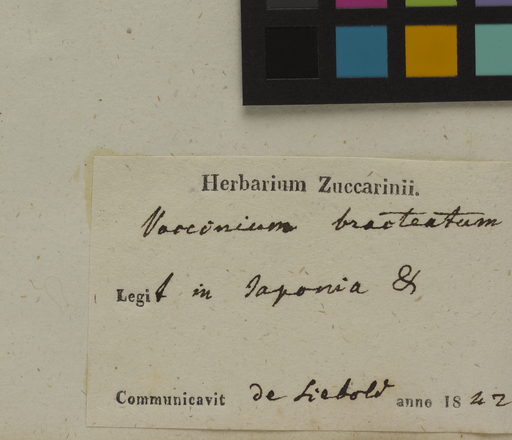 Herbarium Zuccarinii.
Vaccinium bracteatum
Legit in Japonia &
Communicavit de Siebold anno 1842